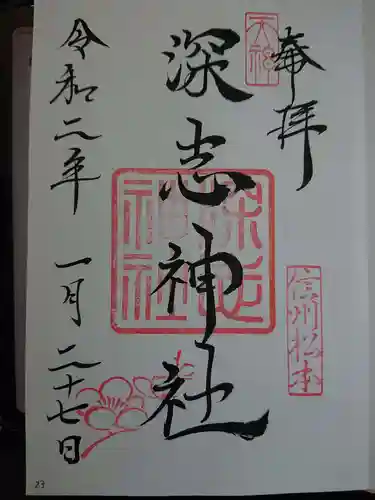 奉拝
天神
信州松本
深志神社
深志神社
令和二年 一月二十七日
23